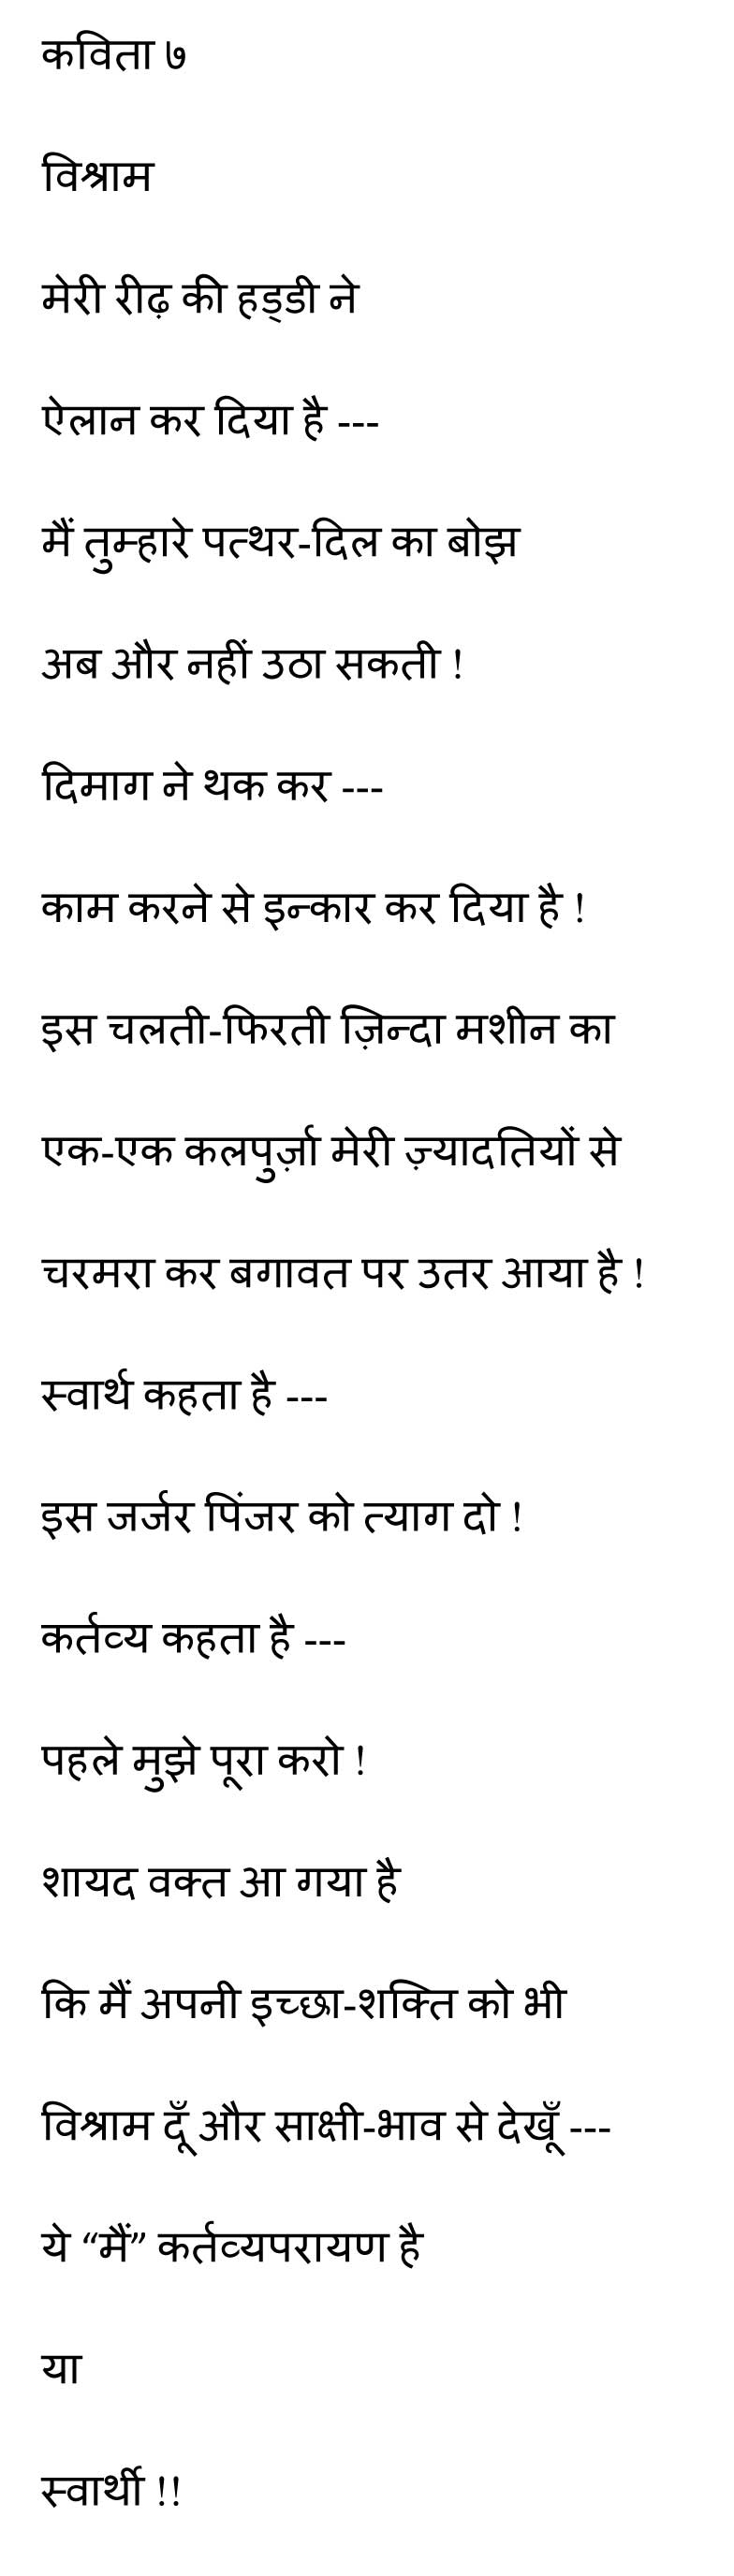 कविता ७
विश्राम
मेरी रीढ़ की हड्डी ने
ऐलान कर दिया है ---
मैं तुम्हारे पत्थर-दिल का बोझ
अब और नहीं उठा सकती !
दिमाग ने थक कर ---
काम करने से इन्कार कर दिया है !
इस चलती-फिरती ज़िन्दा मशीन का
एक-एक कलपुर्ज़ा मेरी ज़्यादतियों से
चरमरा कर बगावत पर उतर आया है !
स्वार्थ कहता है ---
इस जर्जर पिंजर को त्याग दो !
कर्तव्य कहता है ---
पहले मुझे पूरा करो !
शायद वक्त आ गया है
कि मैं अपनी इच्छा-शक्ति को भी
विश्राम दूँ और साक्षी-भाव से देखूँ ---
ये “मैं” कर्तव्यपरायण है
या
स्वार्थी !!